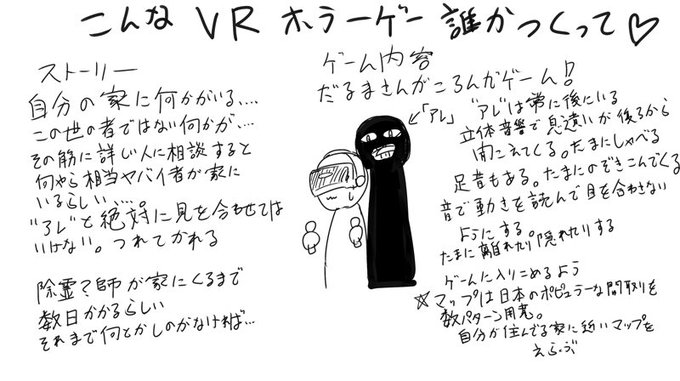 こんな VR ホラーゲー 誰かつくって♡
ストーリー
自分の家に何かがいる…
この世の者ではない何かが…
その筋に詳しい人に相談すると
何やら相当ヤバイ者が家に
いるらしい…。
"アレ"と絶対に見を合わせては
いけない。つれてかれる
除霊?師が家にくるまで
数日かかるらしい
それまで何とかしのがなければ…
ゲーム内容
だるまさんがころんだゲーム!
「アレ」
"アレ"は常に後にいる
立体音響で息遣いが後ろから
聞こえてくる。たまにしゃべる
足音もある。たまにのぞきこんでくる
音で動きを読んで目を合わさない
ようにする。
たまに離れたり隠れたりする
ゲームに入りこめるよう
☆マップは日本のポピュラーな間取りを
数パターン用意。
自分が住んでる家に近いマップを
えらぶ